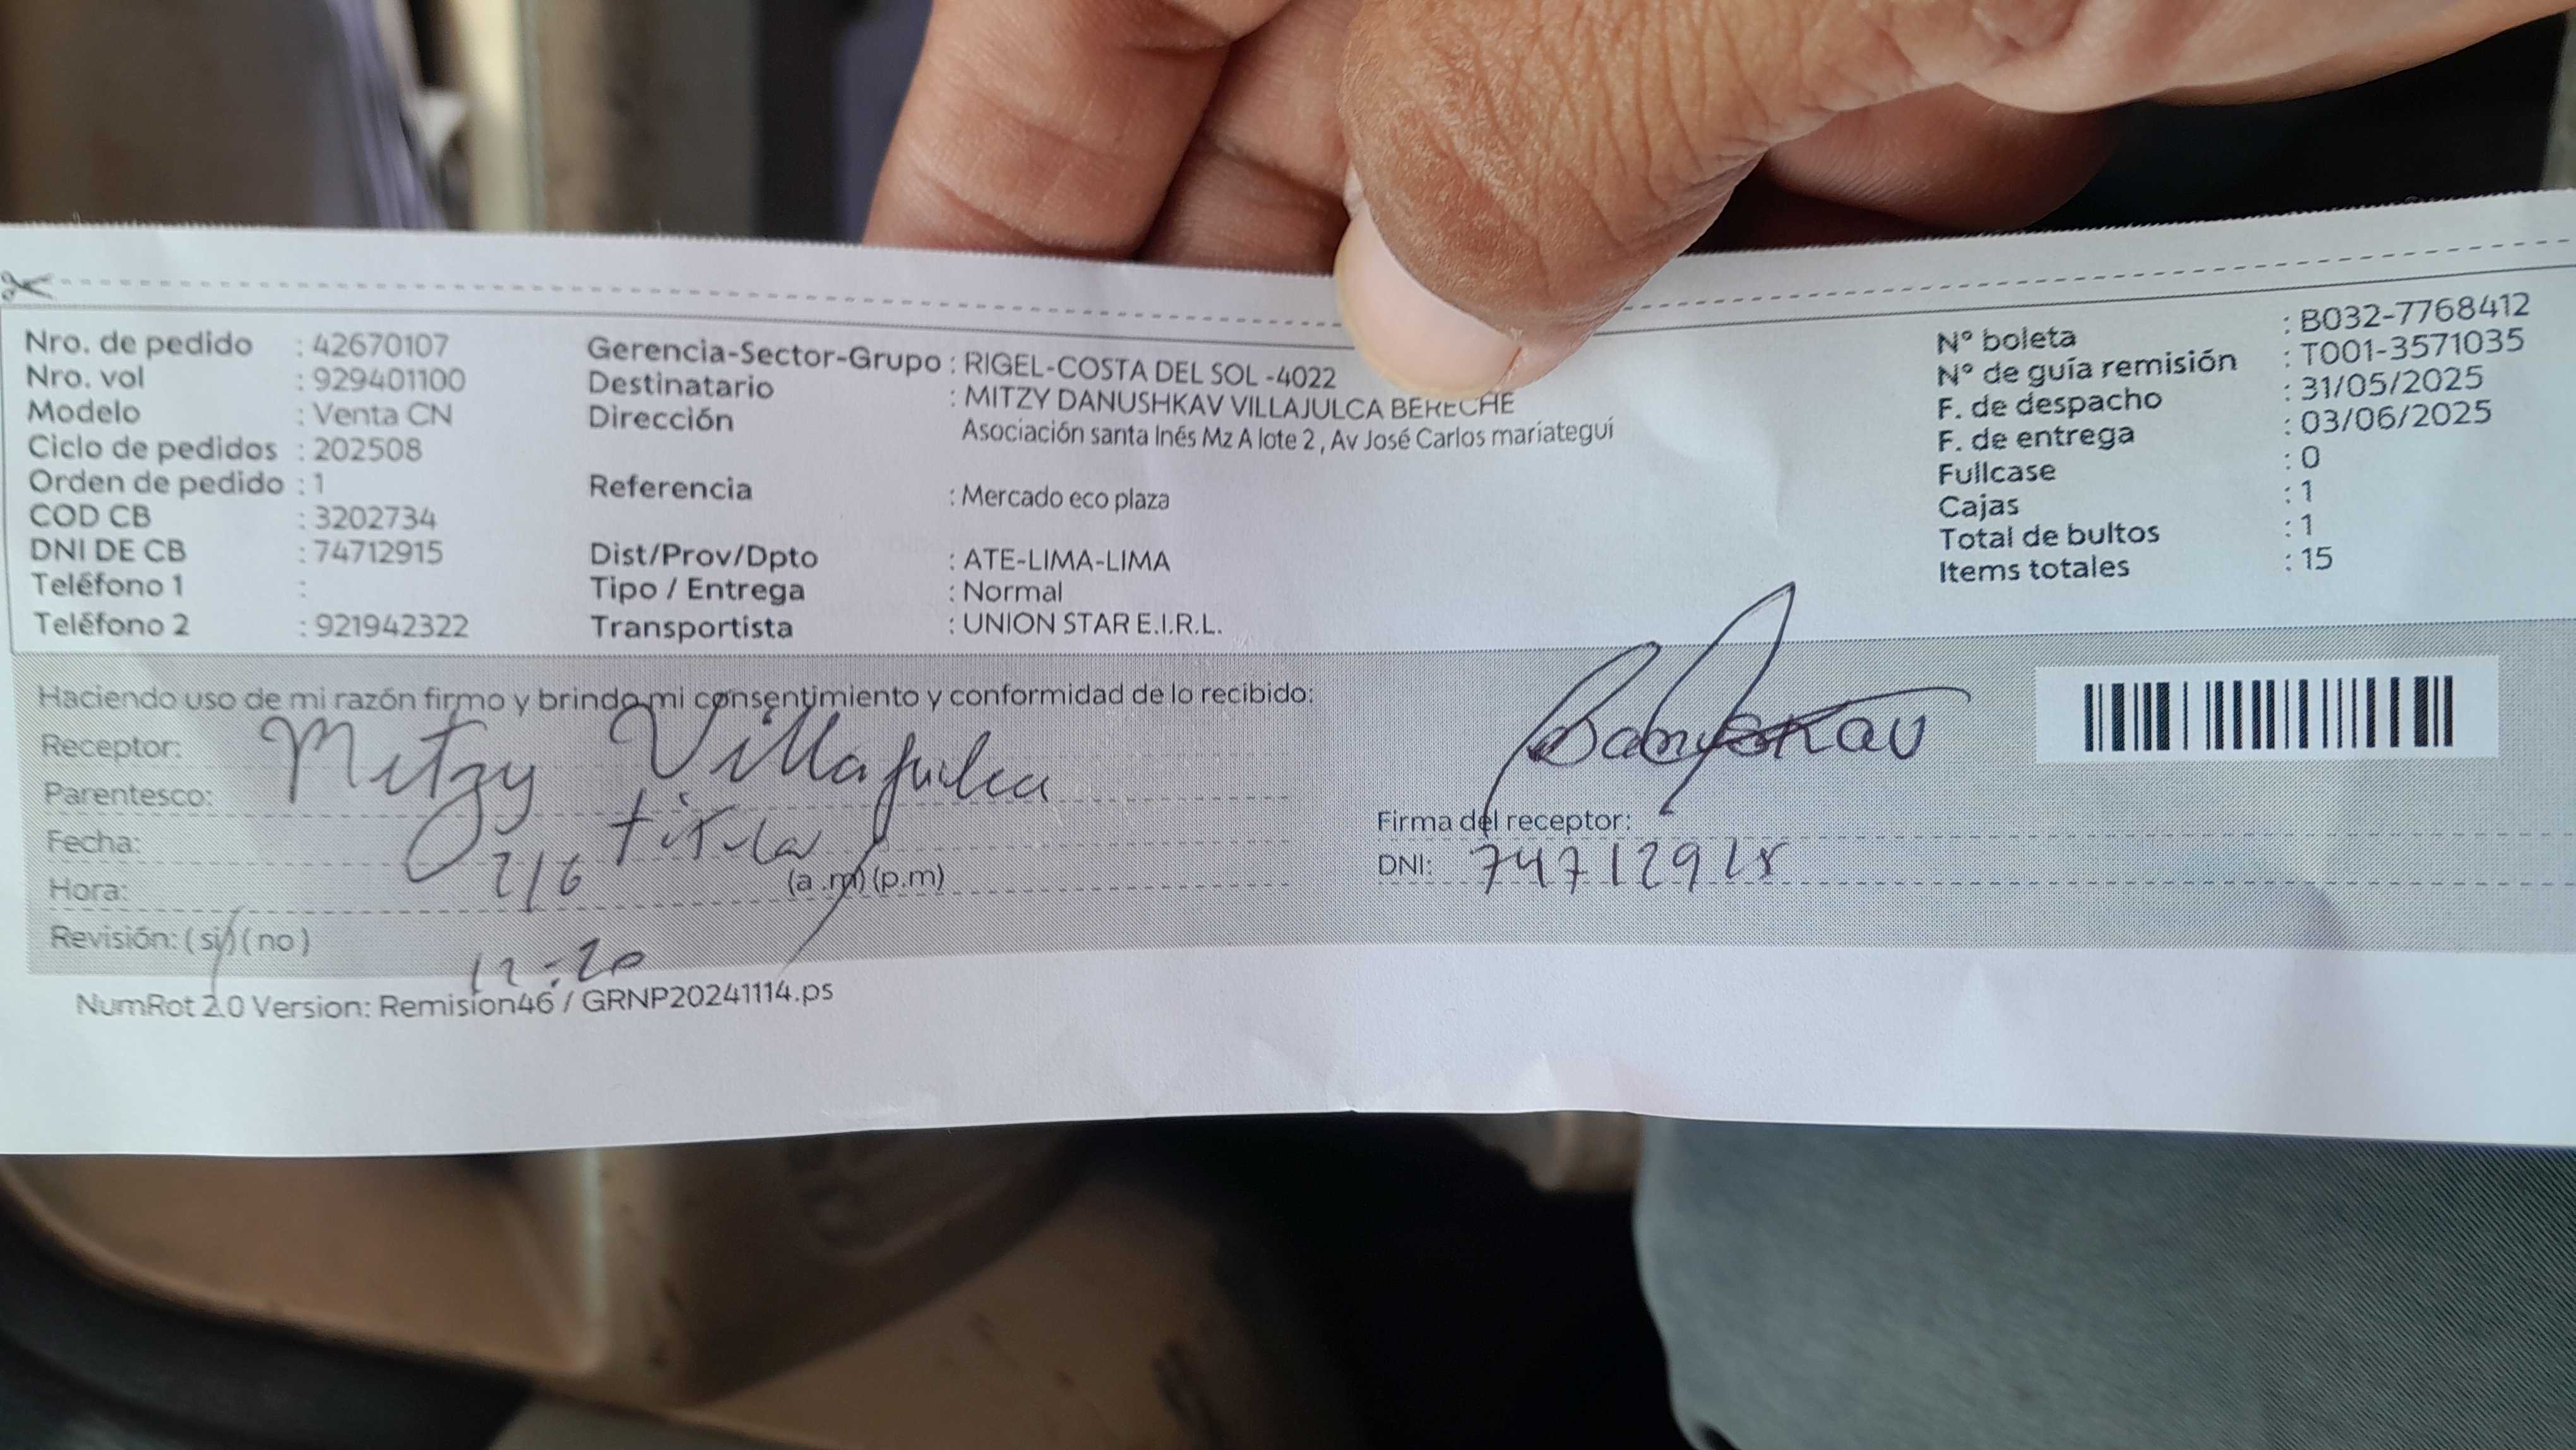 Nro. de pedido : 42670107
Nro. vol : 929401100
Modelo : Venta CN
Ciclo de pedidos : 202508
Orden de pedido : 1
COD CB : 3202734
DNI DE CB : 74712915
Teléfono 1 :
Teléfono 2 : 921942322
Gerencia-Sector-Grupo : RIGEL-COSTA DEL SOL -4022
Destinatario : MITZY DANUSHKAV VILLAJULCA BERECHE
Dirección Asociación santa Inés Mz A lote 2 , Av José Carlos mariategui
Referencia : Mercado eco plaza
Dist/Prov/Dpto : ATE-LIMA-LIMA
Tipo / Entrega : Normal
Transportista : UNION STAR E.I.R.L.
N° boleta : B032-7768412
N° de guía remisión : T001-3571035
F. de despacho : 31/05/2025
F. de entrega : 03/06/2025
Fullcase : 0
Cajas : 1
Total de bultos : 1
Items totales : 15
Haciendo uso de mi razón firmo y brindo mi consentimiento y conformidad de lo recibido:
Receptor: Mitzy Villajulca
Parentesco: titula
Fecha: 2/6
Hora: 12:20 (a .m) (p.m)
Revisión: ( si ) ( no )
Danushkav
Firma del receptor:
DNI: 747129
NumRot 2.0 Version: Remision46 / GRNP20241114.ps